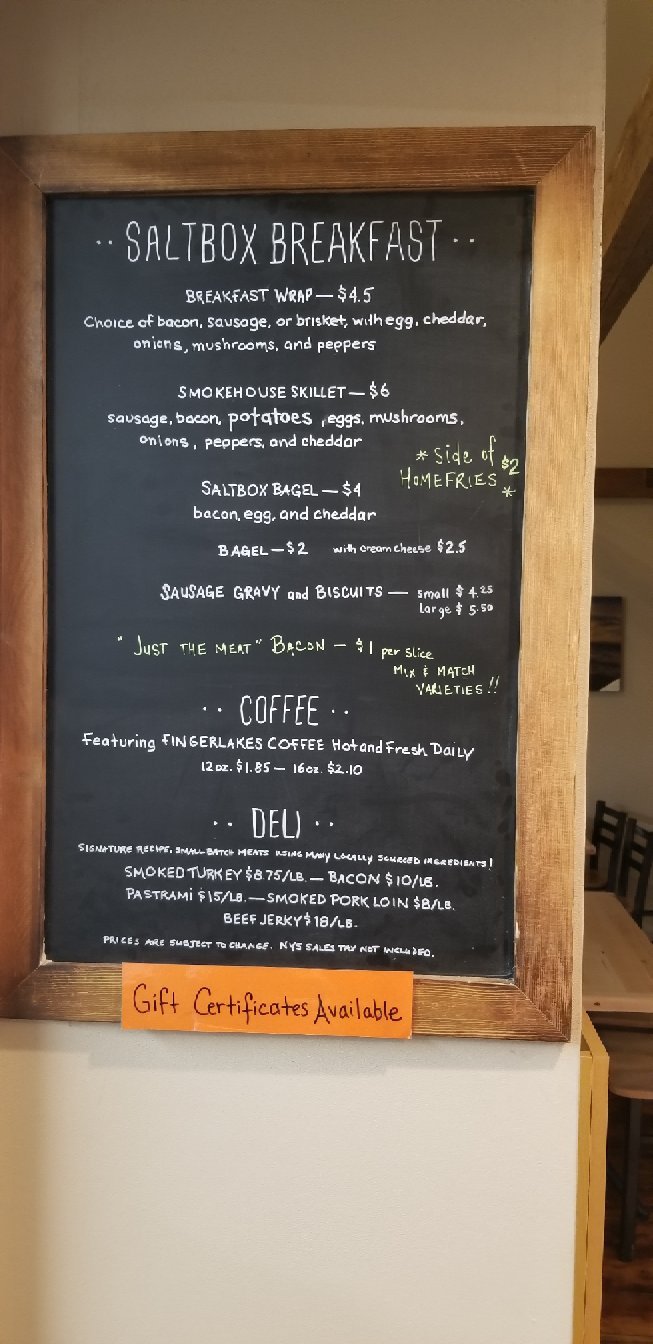 ·· SALTBOX BREAKFAST ··
BREAKFAST WRAP — $4.5
Choice of bacon, sausage, or brisket, with egg, cheddar,
onions, mushrooms, and peppers
SMOKEHOUSE SKILLET — $6
sausage, bacon, potatoes, eggs, mushrooms,
onions, peppers, and cheddar
* Side of $2
HOMEFRIES *
SALTBOX BAGEL — $4
bacon, egg, and cheddar
BAGEL — $2 with cream cheese $2.5
SAUSAGE GRAVY and BISCUITS — small $4.25
large $5.50
"JUST THE MEAT" BACON — $1 per slice
MIX & MATCH
VARIETIES!!
·· COFFEE ··
Featuring FINGERLAKES COFFEE Hot and Fresh Daily
12 oz. $1.85 — 16 oz. $2.10
·· DELI ··
SIGNATURE RECIPE, SMALL BATCH MEATS USING MANY LOCALLY SOURCED INGREDIENTS!
SMOKED TURKEY $8.75/LB. — BACON $10/LB.
PASTRAMI $15/LB. — SMOKED PORK LOIN $8/LB.
BEEF JERKY $18/LB.
PRICES ARE SUBJECT TO CHANGE. NYS SALES TAX NOT INCLUDED.
Gift Certificates Available